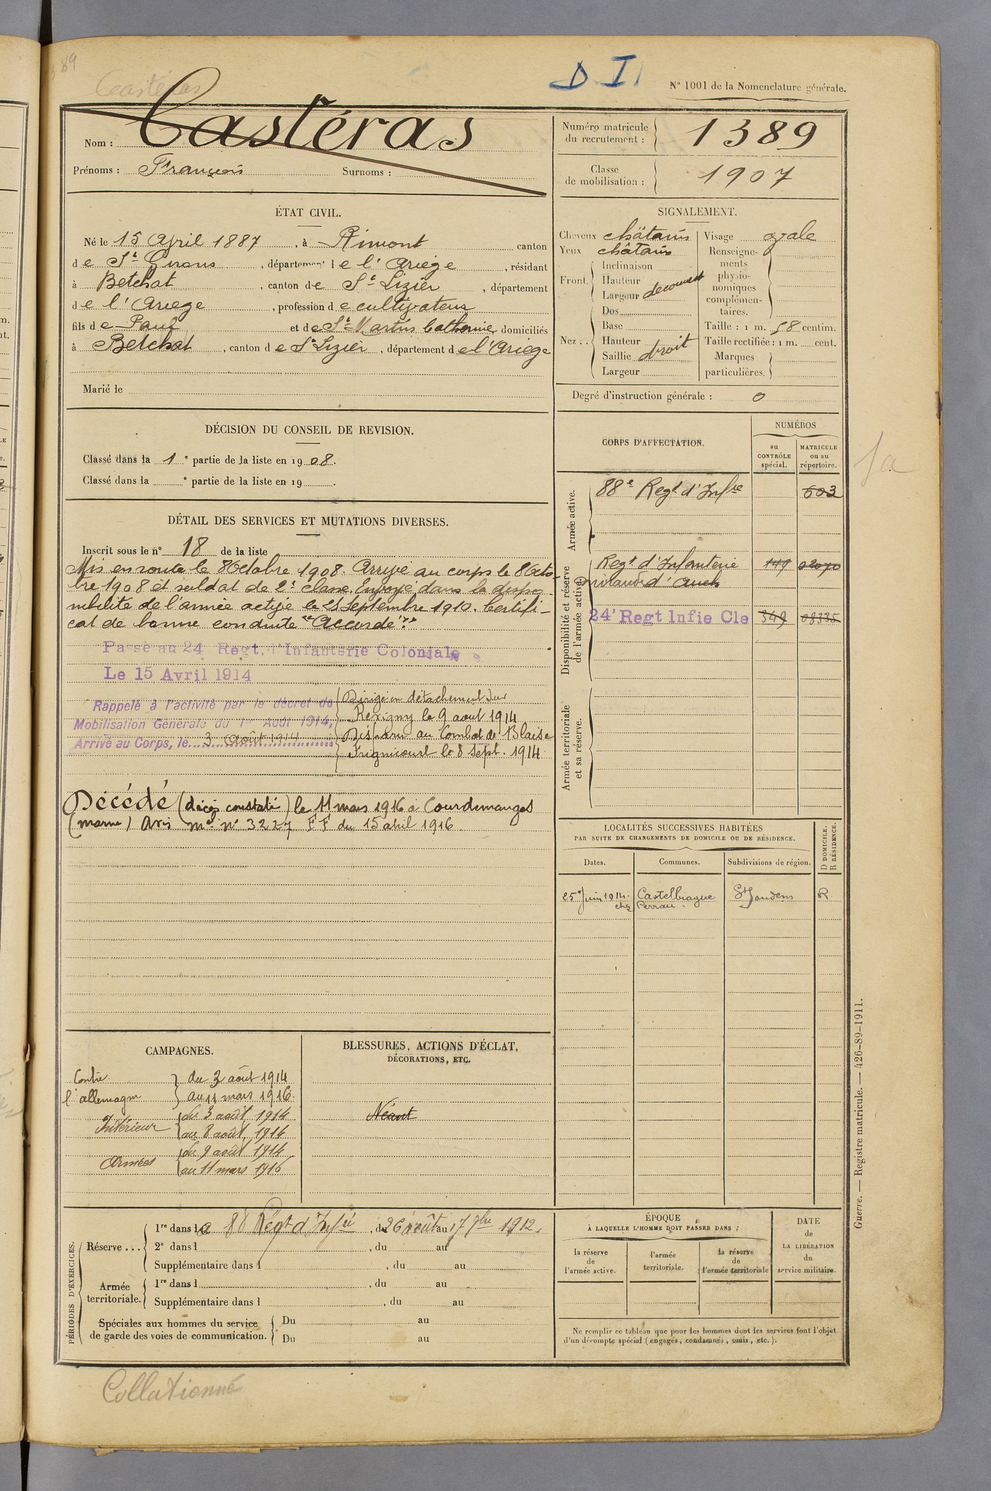 89
Castéras
D.I.
N° 1001 de la Nomenclature générale.
Nom : Castéras
Prénoms : François Surnoms :
Numéro matricule du recrutement : 1389
Classe de mobilisation : 1907
ÉTAT CIVIL.
Né le 15 Avril 1887, à Rimont canton
de St Girons, département de l'Ariège, résidant
à Betchat, canton de St Lizier, département
de l'Ariège, profession de cultivateur
fils de Paul et de St Martin Catherine domiciliés
à Betchat, canton de St Lizier, département de l'Ariège
Marié le
SIGNALEMENT.
Cheveux châtains
Yeux châtains
Front. Inclinaison
Hauteur
Largeur découvert
Nez : Dos
Base
Hauteur
Saillie droit
Largeur
Visage ovale
Renseignements physionomiques complémentaires.
Taille : 1 m. 58 centim.
Taille rectifiée : 1 m. cent.
Marques particulières.
Degré d'instruction générale : 0
DÉCISION DU CONSEIL DE REVISION.
Classé dans la 1e partie de la liste en 1908.
Classé dans la e partie de la liste en 19 .
DÉTAIL DES SERVICES ET MUTATIONS DIVERSES.
Inscrit sous le n° 18 de la liste
Mis en route le 8 Octobre 1908. Arrivé au corps le 8 Octo-
bre 1908 et soldat de 2e classe. Envoyé dans la dispo-
nibilité de l'armée active le 25 Septembre 1910. Certifi-
cat de bonne conduite "Accordé".
Passé au 24 Regt. d'Infanterie Coloniale
Le 15 Avril 1914
Rappelé à l'activité par le décret de
Mobilisation Générale du 1er Août 1914,
Arrivé au Corps, le 3 Août 1914
Dirigé en détachement sur
Revigny le 9 août 1914
Disparu au Combat de Blaise
Frignicourt le 8 Sept. 1914
Décédé (décès constaté) le 11 mars 1916 à Courdemanges
(marne) Avis Mel n° 3227 FF du 15 avril 1916
CORPS D'AFFECTATION.
NUMÉROS
au CONTRÔLE spécial.
MATRICULE ou au répertoire.
Armée active.
88e Regt d'Infrie 603
Disponibilité et réserve de l'armée active.
Regt d'Infanterie 149
d'Auch
24e Regt Infie Cle 349 08335
Armée territoriale et sa réserve.
LOCALITÉS SUCCESSIVES HABITÉES
PAR SUITE DE CHANGEMENTS DE DOMICILE OU DE RÉSIDENCE.
Dates. Communes. Subdivisions de région. D DOMICILE. R RÉSIDENCE.
25 Juin 1914. Castelbiague St Gaudens R
chez
CAMPAGNES.
Contre l'allemagne du 3 août 1914
au 11 mars 1916.
Intérieur du 3 août 1914
au 8 août 1914
Armées du 9 août 1914
au 11 mars 1916
BLESSURES, ACTIONS D'ÉCLAT,
DÉCORATIONS, ETC.
Néant
PÉRIODES D'EXERCICES.
Réserve... 1re dans le 88 Regt d'Infie, du 26 août au 17 7bre 1912.
2e dans l , du au
Supplémentaire dans l , du au
Armée territoriale. 1re dans l , du au
Supplémentaire dans l , du au
Spéciales aux hommes du service
de garde des voies de communication. Du au
Du au
ÉPOQUE
À LAQUELLE L'HOMME DOIT PASSER DANS :
la réserve de l'armée active.
l'armée territoriale.
la réserve de l'armée territoriale
DATE de LA LIBÉRATION du service militaire.
Ne remplir ce tableau que pour les hommes dont les services font l'objet
d'un décompte spécial (engagés, condamnés, omis, etc.).
Guerre. — Registre matricule. — 426-89-1911.
Collationné